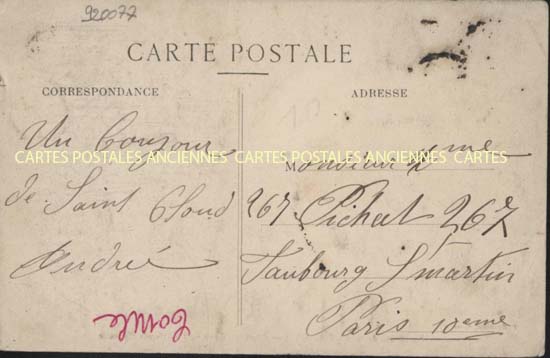 920077
CARTE POSTALE
CORRESPONDANCE
ADRESSE
Un bonjour
de Saint Cloud
André
Monsieur & Mme
267 Pichat 267
Faubourg St martin
Paris 10eme
CARTES POSTALES ANCIENNES CARTES POSTALES ANCIENNES CARTES